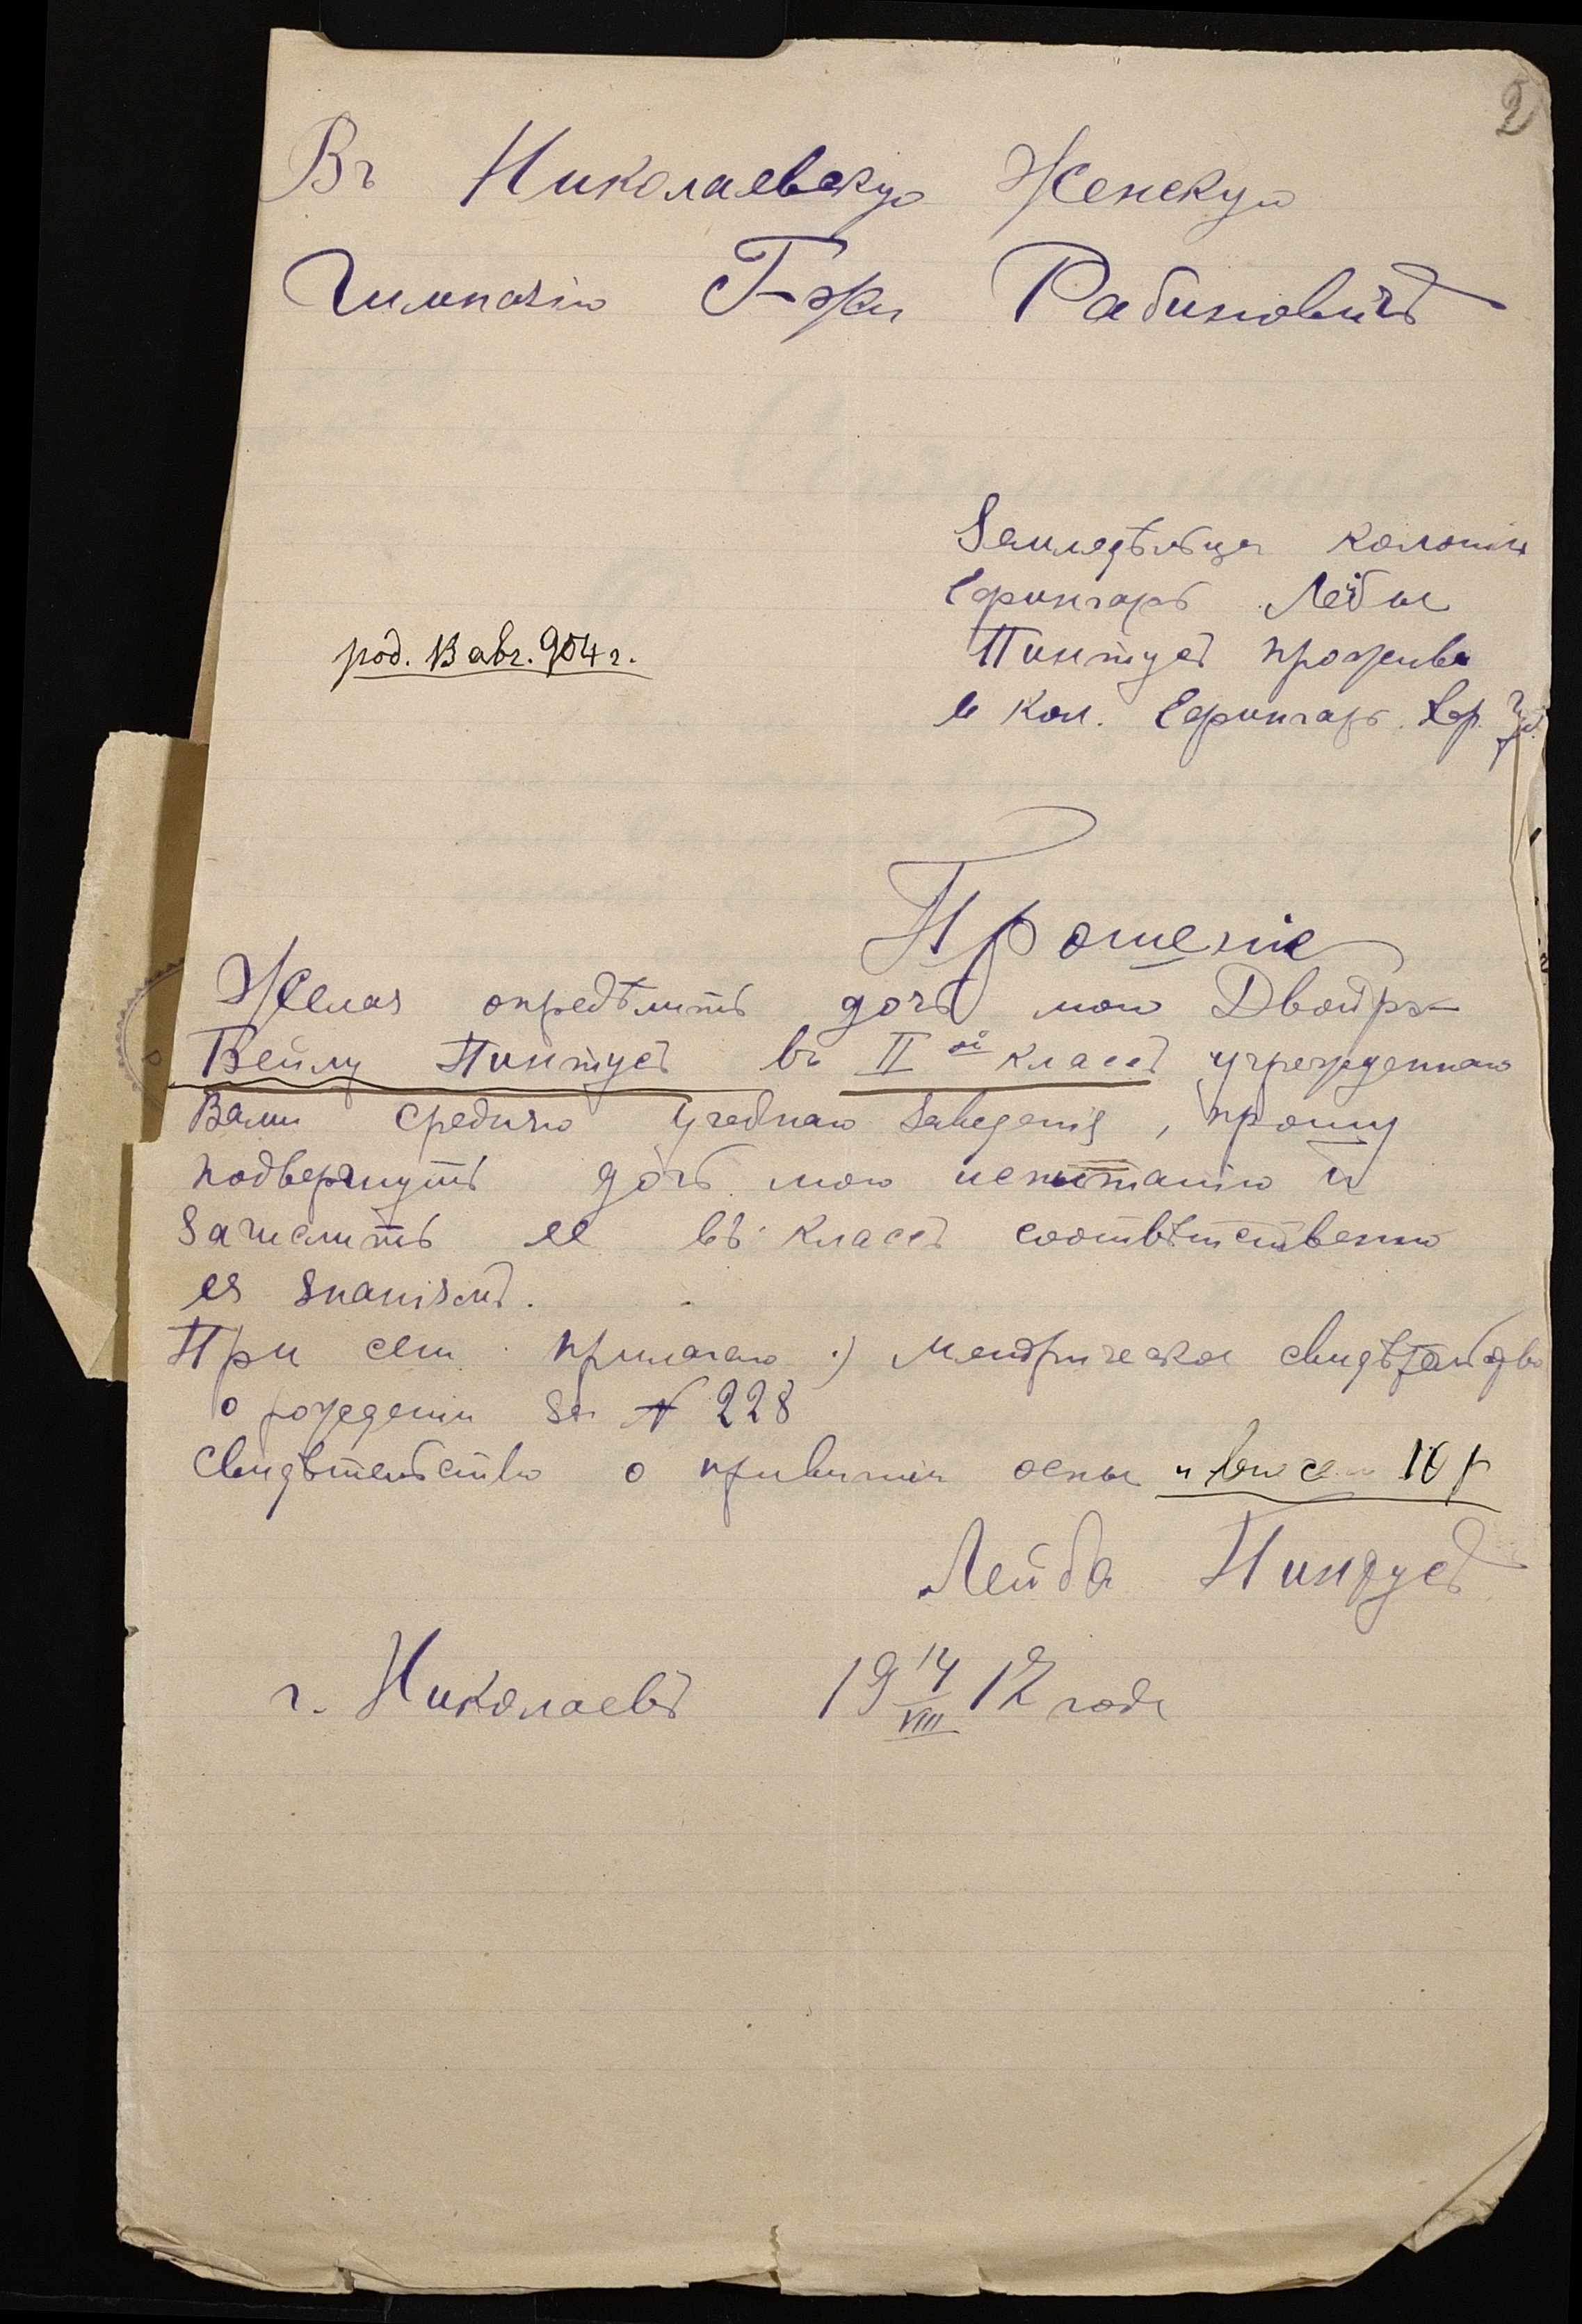 2
Въ Николаевскую Женскую
Гимназію Г-жи Рабиновичъ
Земледѣльца колоніи
Ефингаръ Лейбы
Пинтусъ прожив.
в кол. Ефингаръ Хер. губ.
род. 13 авг. 904 г.
Прошеніе
Желая опредѣлить дочь мою Двойру-
Бейлу Пинтусъ въ II ой классъ учрежденнаго
Вами среднаго учебнаго заведенія, прошу
подвергнуть дочь мою испытанію и
зачислить ее въ классъ соотвѣтственно
ея знаніямъ.
При сем прилагаю .) метрическое свидѣтельство
о рождении за № 228
свидѣтельство о привитіи оспы и взнос 10 р
Лейба Пинтусъ
г. Николаевъ 19 14/VIII 17 года